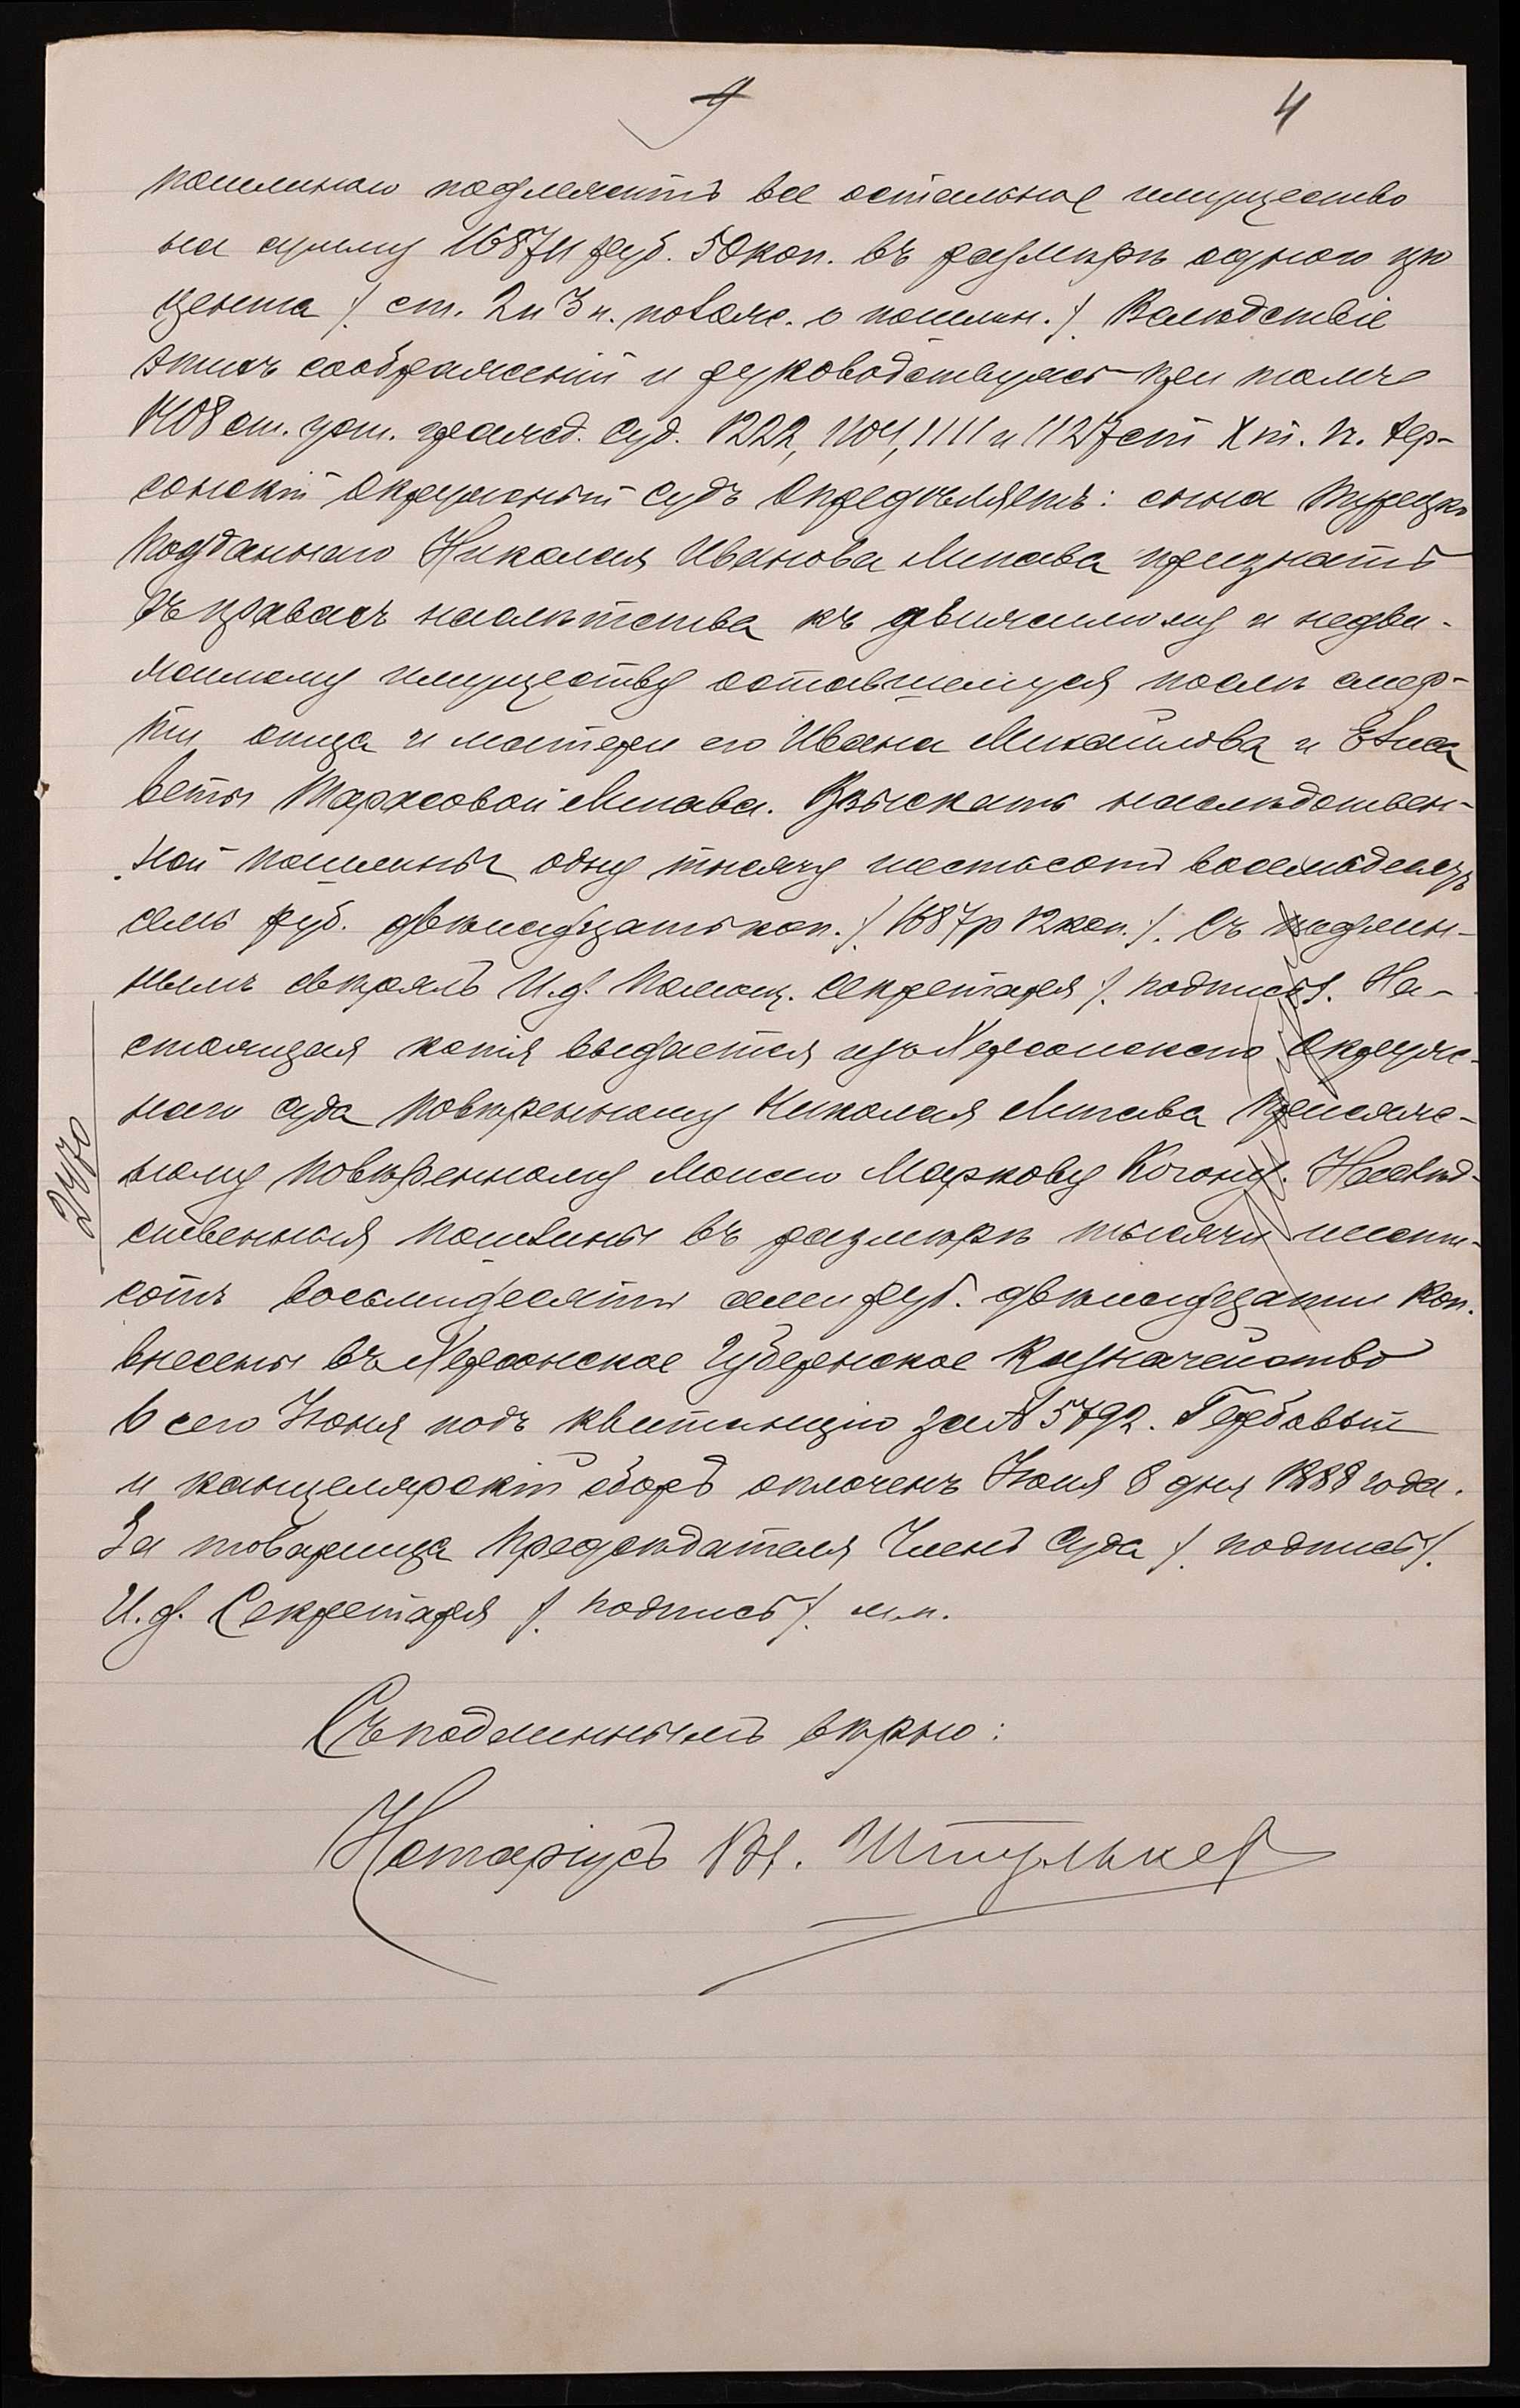 4
пошлиною подлежитъ все остальное имущество
на сумму 168711 руб. 50 коп. въ размѣрѣ одного про
цента /. ст. 2 и 3 п. полож. о пошлин. /. Вслѣдствіе
этихъ соображеній и руководствуясь при томъ
1408 ст. уст. гражд. суд. 1222, 1104, 1111 и 1127 ст X т. Хер-
сонскій Окружный Судъ Опредѣляетъ: сына турецко
подданнаго Николая Иванова Липава признать
въ правахъ наслѣдства къ движимому и недви-
жимому имуществу оставшемуся послѣ смер-
ти отца и матери его Ивана Михайлова и Елиса
веты Тарасовой Липава. Взыскать наслѣдствен-
ной пошлины одну тысячу шестьсотъ восемьдесятъ
семь руб. двѣнадцать коп. /. 1687 р 12 коп. /. Съ подлин-
нымъ свѣрялъ И. д. Помощ. Секретаря /. подпись /. На-
стоящая копія выдается изъ Херсонскаго Окруж-
наго суда повѣренному Николая Липава Присяж-
ному повѣренному Моисею Маркову Когону. Наслѣд-
ственныя пошлины въ размѣрѣ тысячи шест-
сотъ восьмидесяти семи руб. двѣнадцати коп.
внесены въ Херсонское Губернское Казначейство
6 сего Іюня подъ квитанцію за № 5792. Гербовый
и канцелярскій сборъ оплоченъ Іюня 8 дня 1888 года.
За товарища Предсѣдателя Членъ Суда /. подпись /.
И. д. Секретаря /. подпись /. м. п.
2470
Съ подлиннымъ вѣрно:
Нотаріусъ Вл.